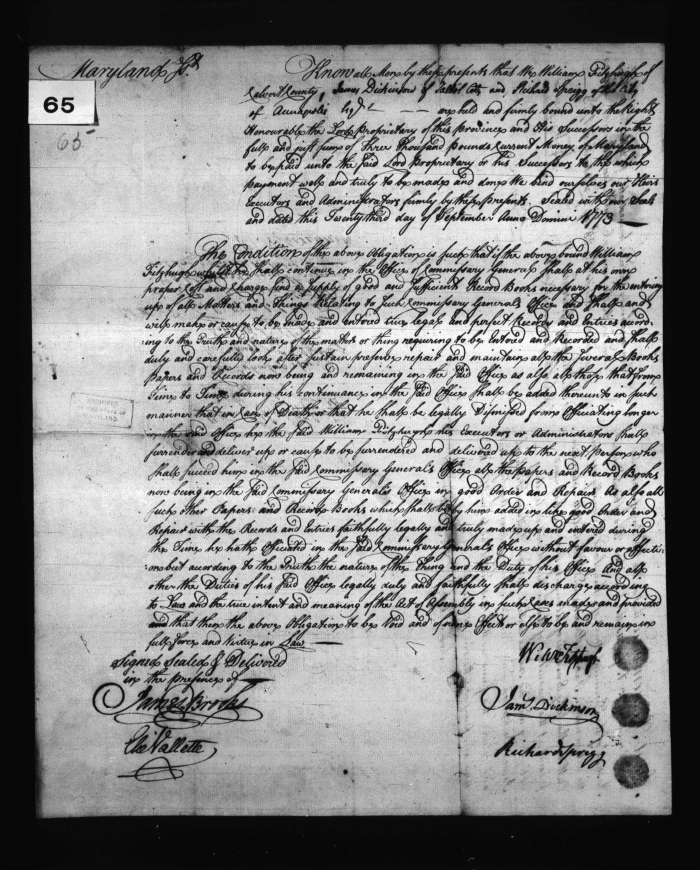 Maryland Ss.
65
65
Know all Men by these presents that We William Fitzhugh of
Calvert County, James Dickinson of Talbot Coty and Richard Sprigg of the City
of Annapolis Esqrs. are held and firmly bound unto the Right
Honourable the Lord Proprietary of this Province and His Successors in the
full and just sum of Three Thousand Pounds Current Money of Maryland
to be paid unto the said Lord Proprietary or his Successors to the which
payment well and truly to be made and done We bind ourselves our Heirs
Executors and Administrators firmly by these presents. Sealed with our Seals
and dated this Twenty third day of September Anno Domini 1773
The Condition of the above Obligation is such that if the above bound William
Fitzhugh shall continue in the Office of Commissary General shall at his own
proper Cost and Charge find a Supply of good and sufficient Record Books necessary for the entering
up of all Matters and things Relating to such Commissary Generals Office and shall and
will make or cause to be made and entered true legal and perfect Records and Entries accord-
ing to the Truth and nature of the matter or thing requiring to be Entered and Recorded and shall
duly and carefully look after sustain preserve repair and maintain all the several Books
Papers and Records now being and remaining in the said Office as also all those that from
Time to Time during his continuance in the said Office shall be added thereunto in such
manner that in Case of Death or that he shall be legally Dismissed from Officiating longer
in the said Office he the said William Fitzhugh his Executors or Administrators shall
surrender and deliver up or cause to be surrendered and delivered up to the next Person who
shall succeed him in the said Commissary Generals Office all the Papers and Record Books
now being in the said Commissary Generals Office in good Order and Repair As also all
such other Papers and Record Books which shall be by him added in like good Order and
Repair with the Records and Entries faithfully legally and truly made up and entered during
the Time he hath Officiated in the said Commissary Generals Office without favour or affecti-
on but according to the Truth the nature of the Thing and the Duty of his Office And all
other the Duties of his said Office legally duly and faithfully shall discharge according
to Law and the true intent and meaning of the Act of Assembly in such Case made and provided
and that then the above Obligation to be Void and of none Effect or else to be and remain in
full force and virtue in Law
Signed Sealed & Delivered
in the presence of
James Brooks
Elie Vallette
Wm Fitzhugh
Jams. Dickinson
Richard Sprigg